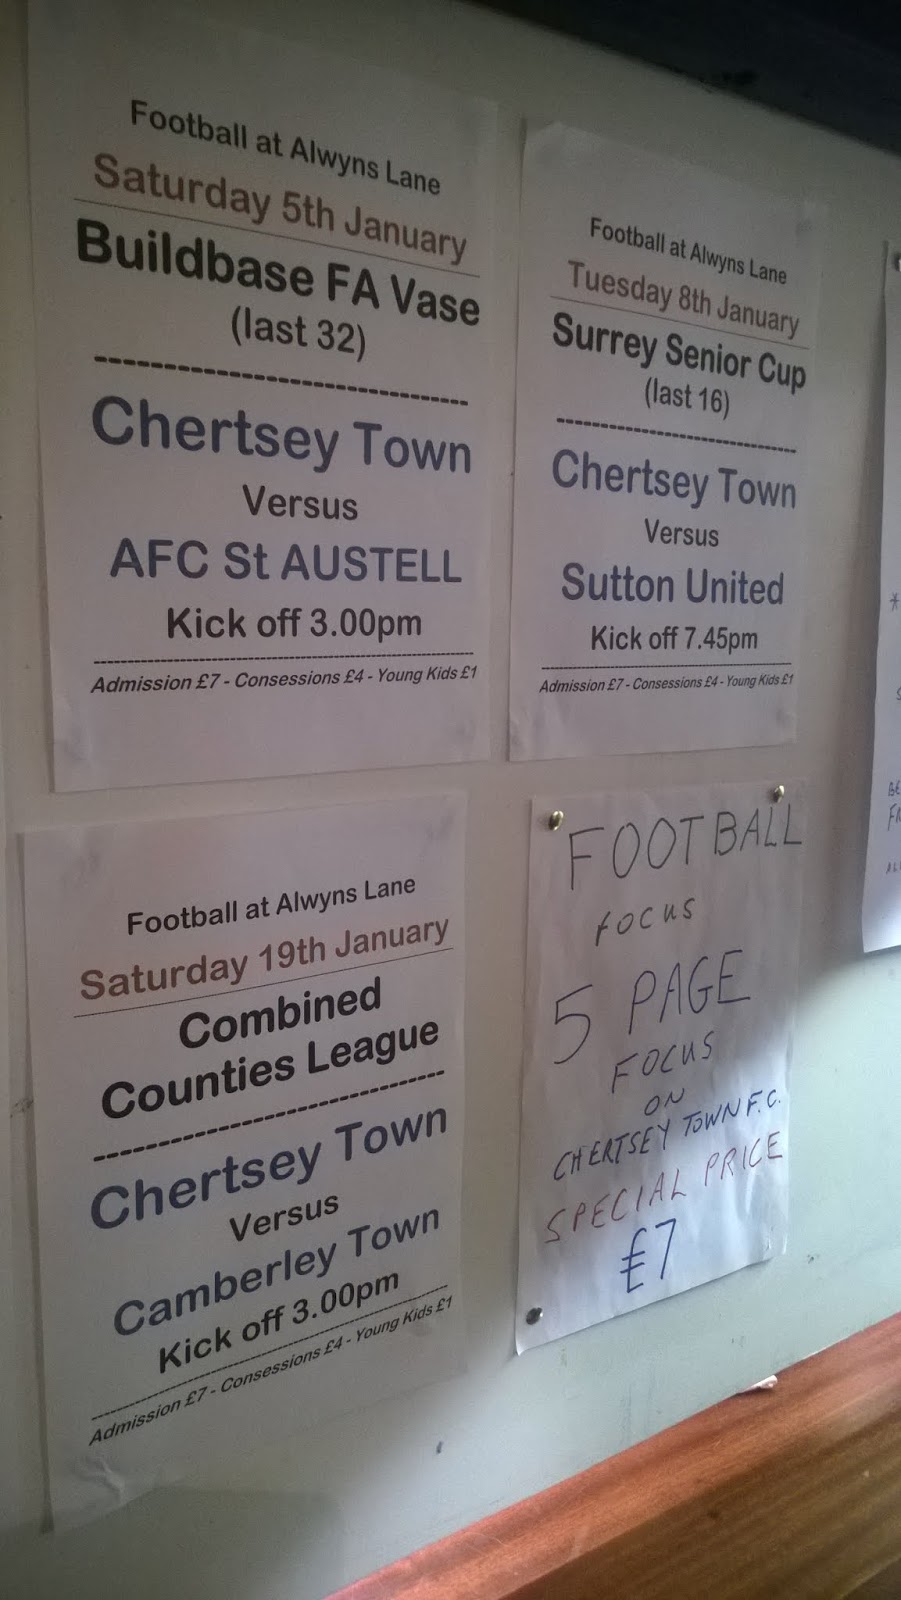 Football at Alwyns Lane
Saturday 5th January
Buildbase FA Vase
(last 32)
Chertsey Town
Versus
AFC St AUSTELL
Kick off 3.00pm
Admission £7 - Consessions £4 - Young Kids £1
Football at Alwyns Lane
Tuesday 8th January
Surrey Senior Cup
(last 16)
Chertsey Town
Versus
Sutton United
Kick off 7.45pm
Admission £7 - Consessions £4 - Young Kids £1
Football at Alwyns Lane
Saturday 19th January
Combined
Counties League
Chertsey Town
Versus
Camberley Town
Kick off 3.00pm
Admission £7 - Consessions £4 - Young Kids £1
FOOTBALL
FOCUS
5 PAGE
FOCUS
ON
CHERTSEY TOWN F.C.
SPECIAL PRICE
£7